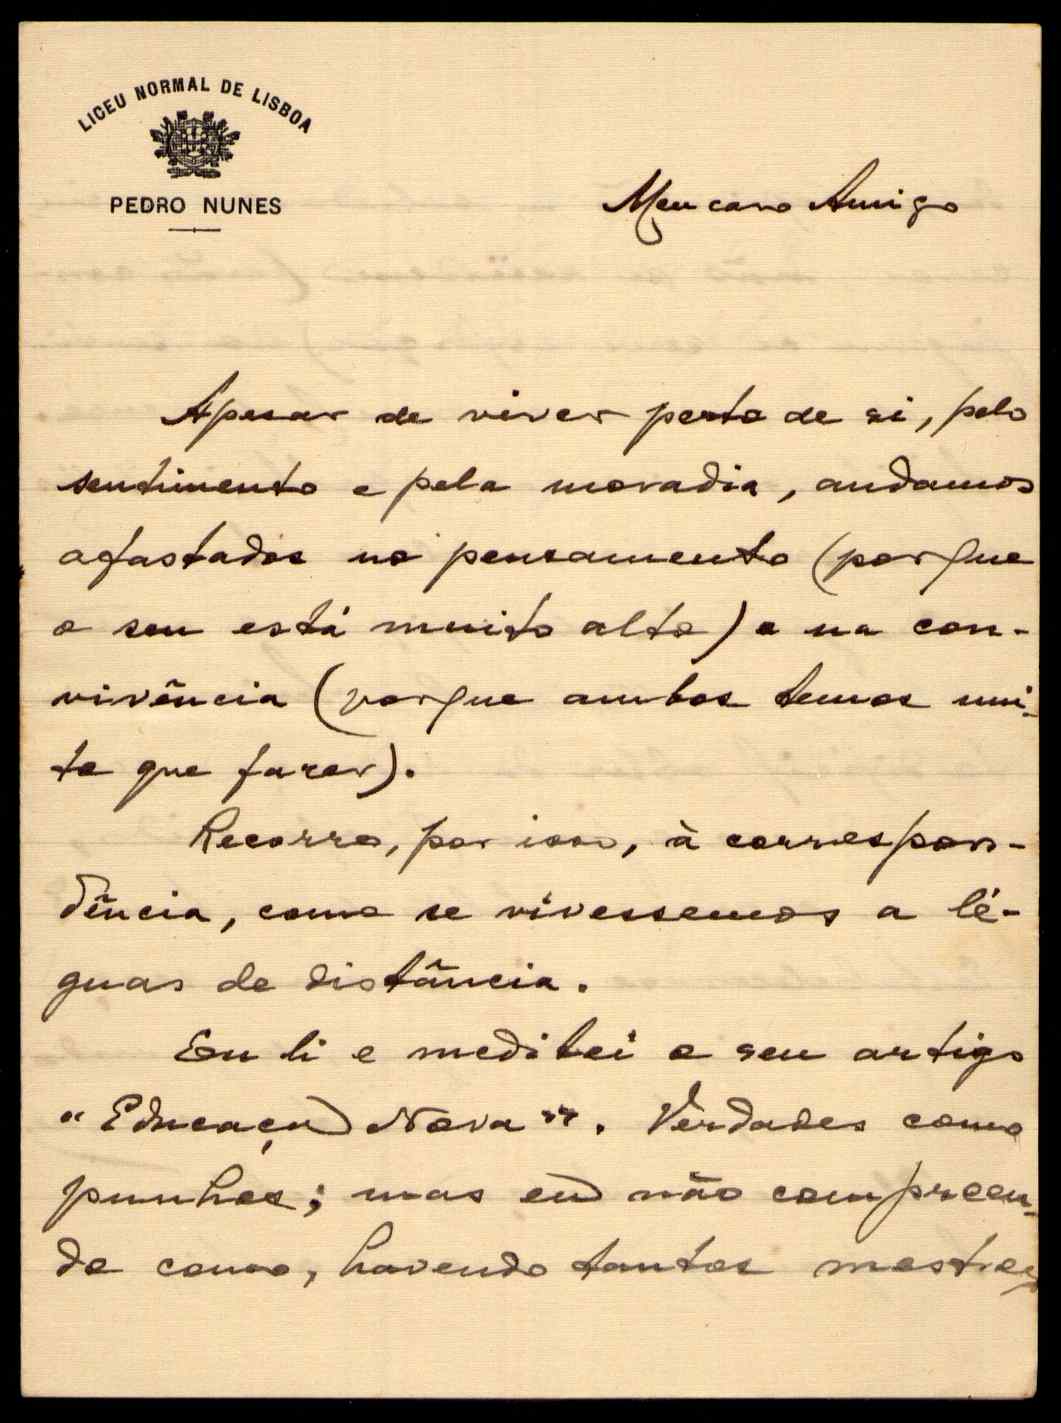 LICEU NORMAL DE LISBOA
PEDRO NUNES
Meu caro Amigo
Apesar de viver perto de si, pelo
sentimento e pela moradia, andamos
afastados no pensamento (porque
o seu está muito alto) e na con-
vivência (porque ambos temos mui-
to que fazer).
Recorro, por isso, à correspon-
dência, como se vivessemos a lé-
guas de distância.
Eu li e meditei o seu artigo
"Educação Nova". Verdades como
punhos; mas eu não compreen-
do como, havendo tantos mestres